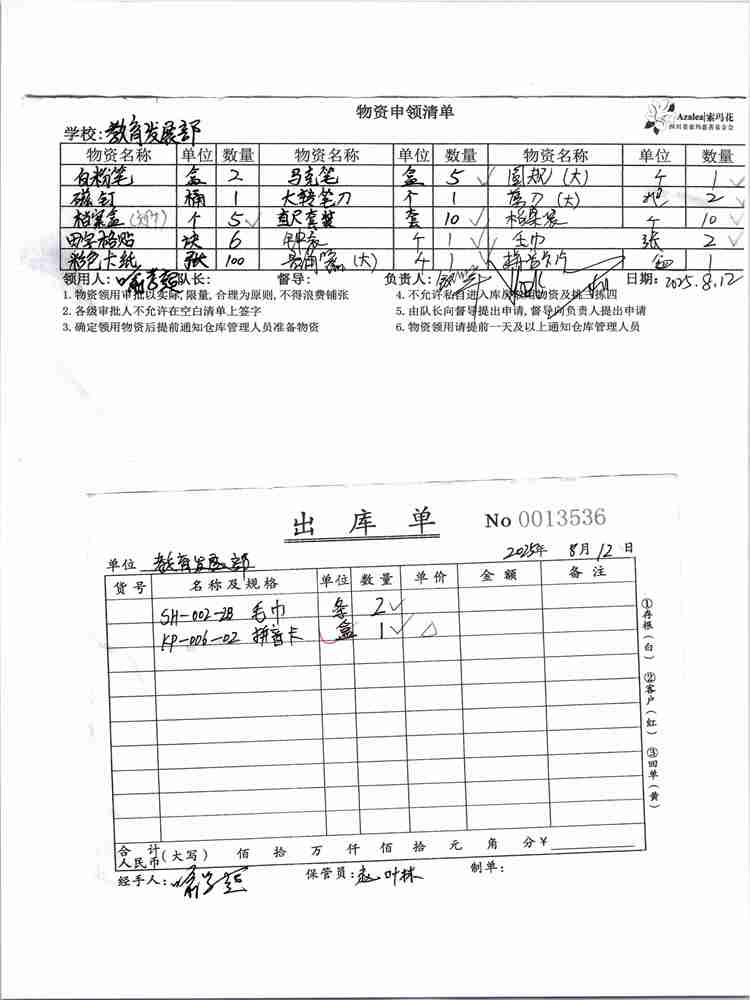 物资申领清单
Azalea|索玛花
四川省索玛慈善基金会
学校:教育发展部
物资名称 单位 数量 物资名称 单位 数量 物资名称 单位 数量
白粉笔 盒 2 马克笔 盒 5 圆规(大) 个 1
磁钉 桶 1 大转笔刀 个 1 剪刀(大) 把 2
档案盒 个 5 直尺套装 套 10 档案袋 个 10
田字格贴 块 6 钟表 个 1 毛巾 张 2
彩色卡纸 张 100 (大) 个 1 拼音卡片 1
领用人: 队长: 督导: 负责人: 日期: 2025.8.12
1.物资领用审批以实际,限量,合理为原则,不得浪费铺张 4.不允许私自进入库房领用物资及挑三拣四
2.各级审批人不允许在空白清单上签字 5.由队长向督导提出申请,督导向负责人提出申请
3.确定领用物资后提前通知仓库管理人员准备物资 6.物资领用请提前一天及以上通知仓库管理人员
出库单 No 0013536
单位 教育发展部 2025年 8月 12日
货号 名称及规格 单位 数量 单价 金额 备注
SH-002-2B 毛巾 条 2
KP-006-02 拼音卡 盒 1
①存根(白) ②客户(红) ③回单(黄)
合计人民币(大写) 佰 拾 万 仟 佰 拾 元 角 分 ¥
经手人: 保管员:赵叶林 制单: